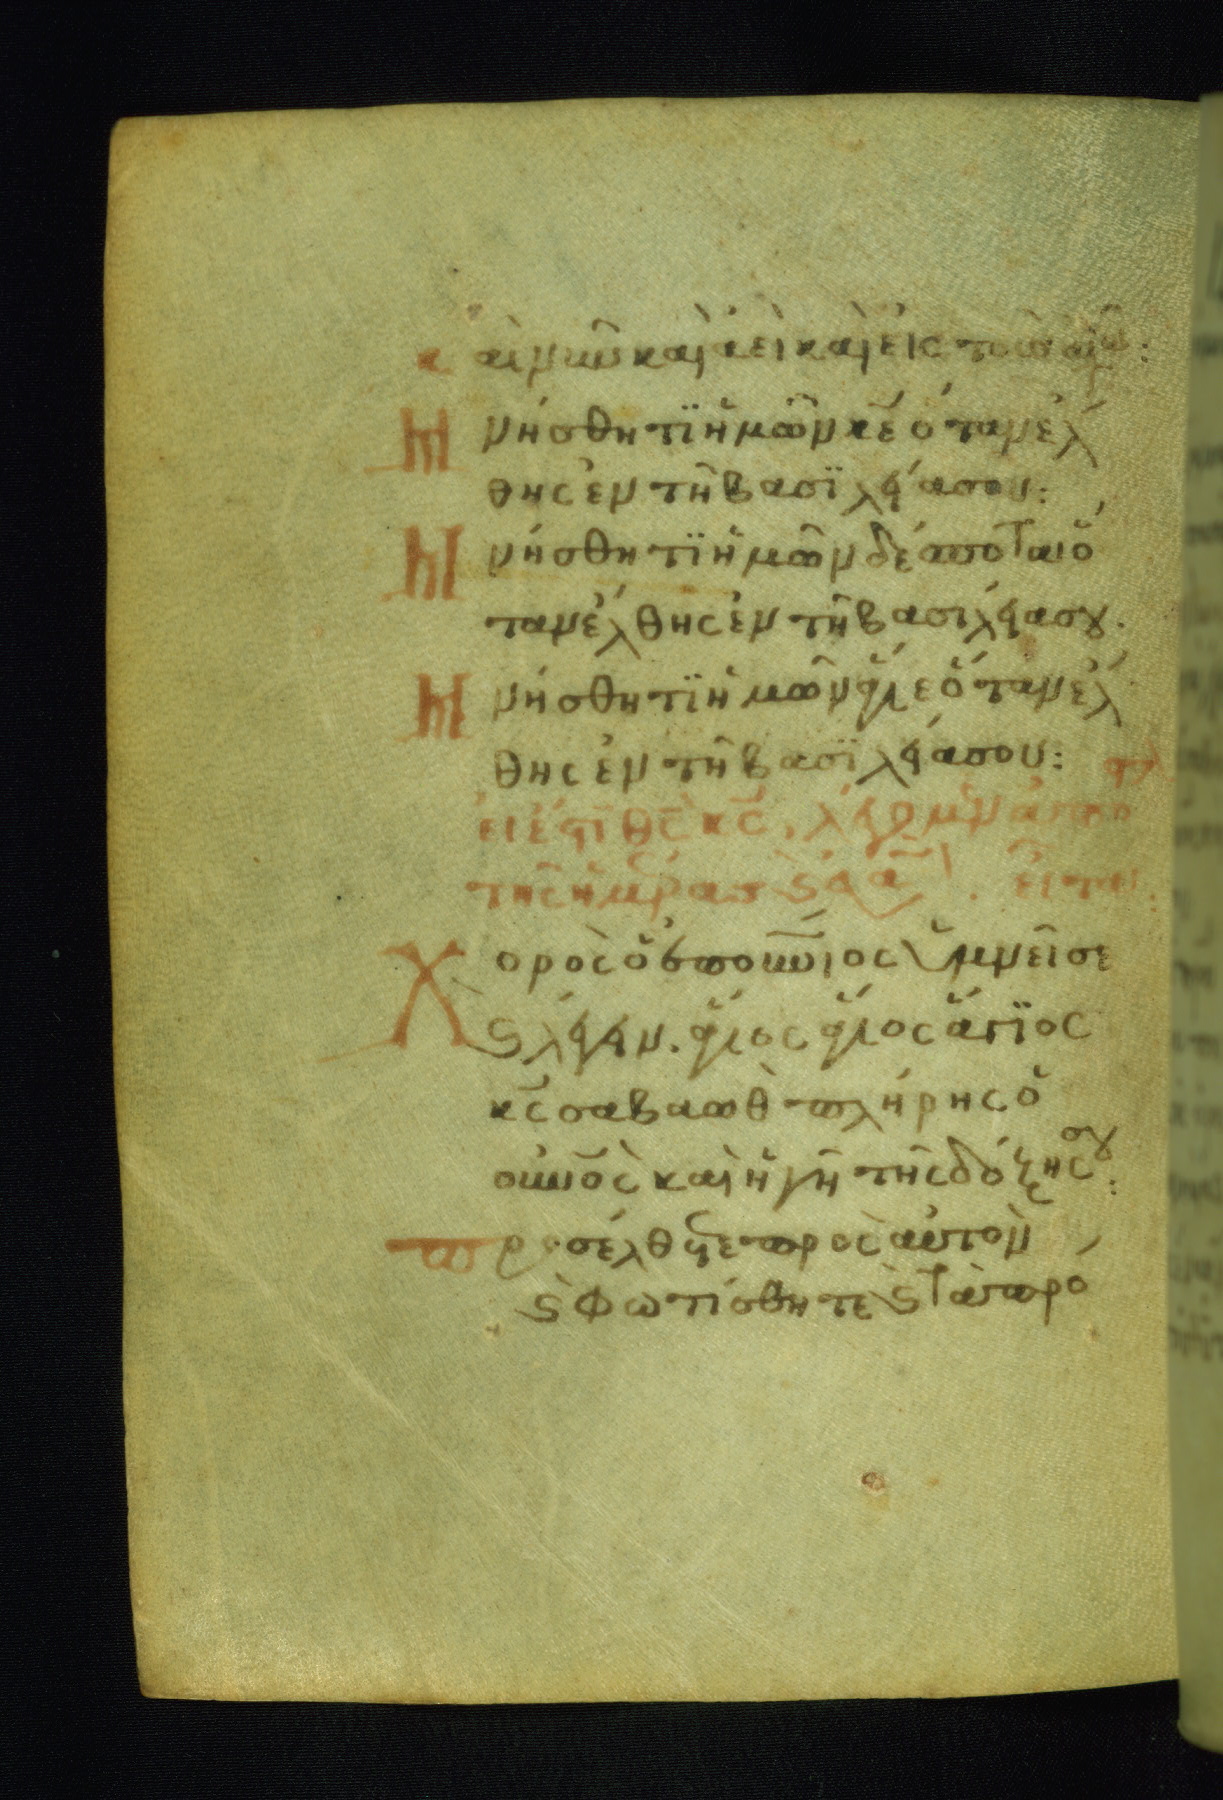 καὶ νῦν καὶ ἀεὶ καὶ εἰς τοὺς αἰῶ:
Μνήσθητϊ ἡμῶν κε ὅταν ἔλ
θης ἐν τῆ βασϊλείασου:
Μνήσθητϊ ἡμῶν δέσποτα ὅ
ταν ἔλθης ἐν τῆ βασιλείασου.
Μνήσθητϊ ἡμῶν ἅγιε ὅταν ἔλ
θης ἐν τῆ βασϊλείασου:
θς κς
τῆς ἡμέρας
Χορὸς ὁ ἐπουνιος ὑμνεῖ σε
κ λέγειν. ἅγιος ἅγιος ἅγϊος
κς σαβαωθ πλήρης ὁ
οὐνος καὶ ἡ γῆ τῆς δόξης σου:
Προσέλθετε προς αὐτὸν
κ φωτίσθητε κ τὰ πρό